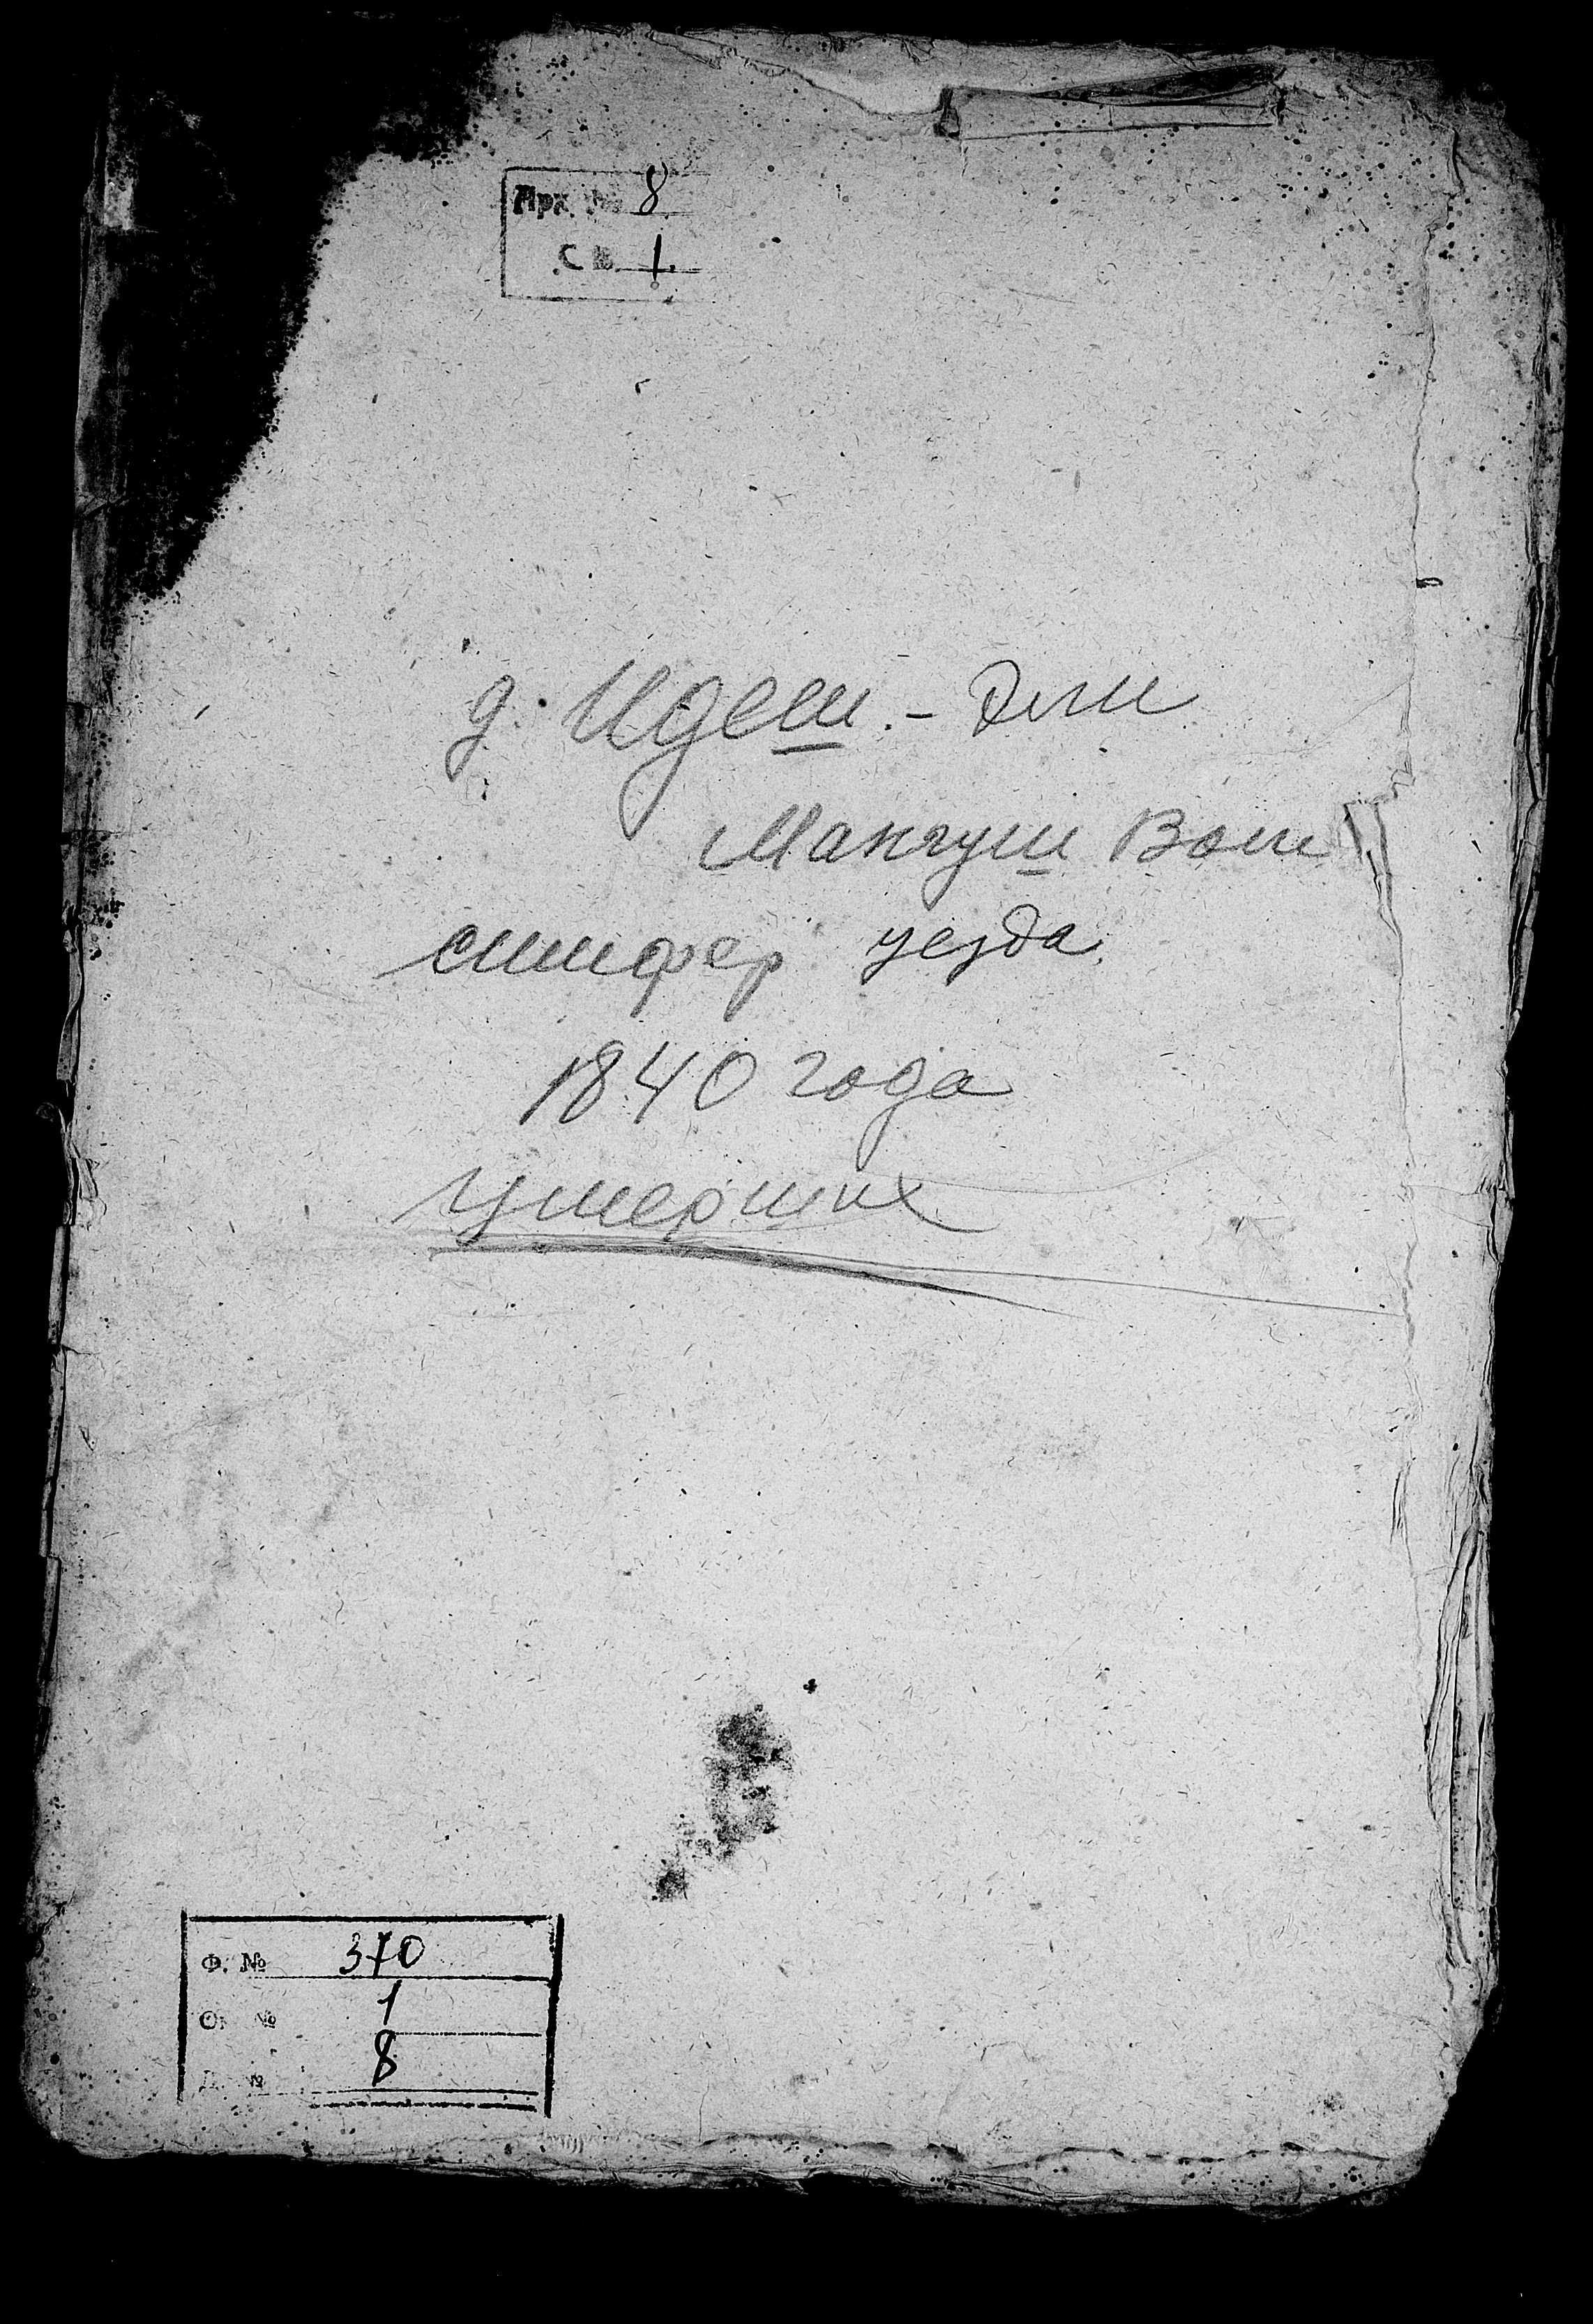 Арх. № 8
Св. 1.
д. Идеш. - Эли
Мангуш Вол
симфер уезда.
1840 года
умерших
Ф. № 370
Оп. № 1
Д. № 8